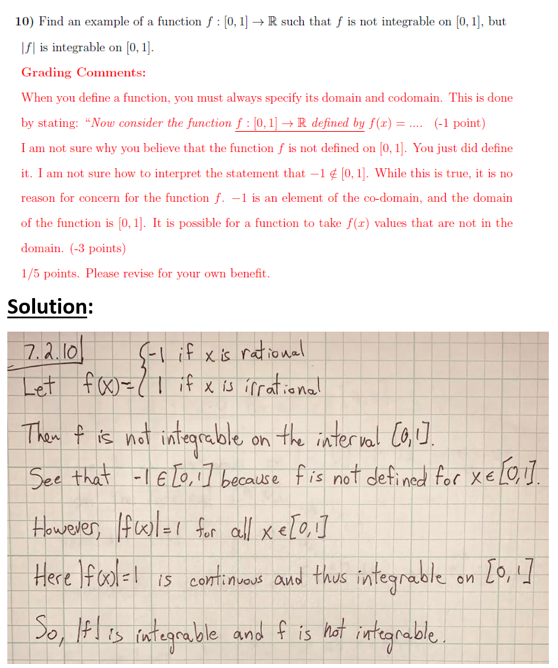 10) Find an example of a function f : [0, 1] → ℝ such that f is not integrable on [0, 1], but
|f| is integrable on [0, 1].
Grading Comments:
When you define a function, you must always specify its domain and codomain. This is done
by stating: “Now consider the function f : [0, 1] → ℝ defined by f(x) = .... (-1 point)
I am not sure why you believe that the function f is not defined on [0, 1]. You just did define
it. I am not sure how to interpret the statement that −1 ∉ [0, 1]. While this is true, it is no
reason for concern for the function f. −1 is an element of the co-domain, and the domain
of the function is [0, 1]. It is possible for a function to take f(x) values that are not in the
domain. (-3 points)
1/5 points. Please revise for your own benefit.
Solution:
7.2.10
Let f(x)= { -1 if x is rational
1 if x is irrational
Then f is not integrable on the interval [0,1].
See that -1 ∈ [0,1] because f is not defined for x ∈ [0,1].
However, |f(x)|=1 for all x ∈ [0,1]
Here |f(x)|=1 is continuous and thus integrable on [0,1]
So, |f| is integrable and f is not integrable.